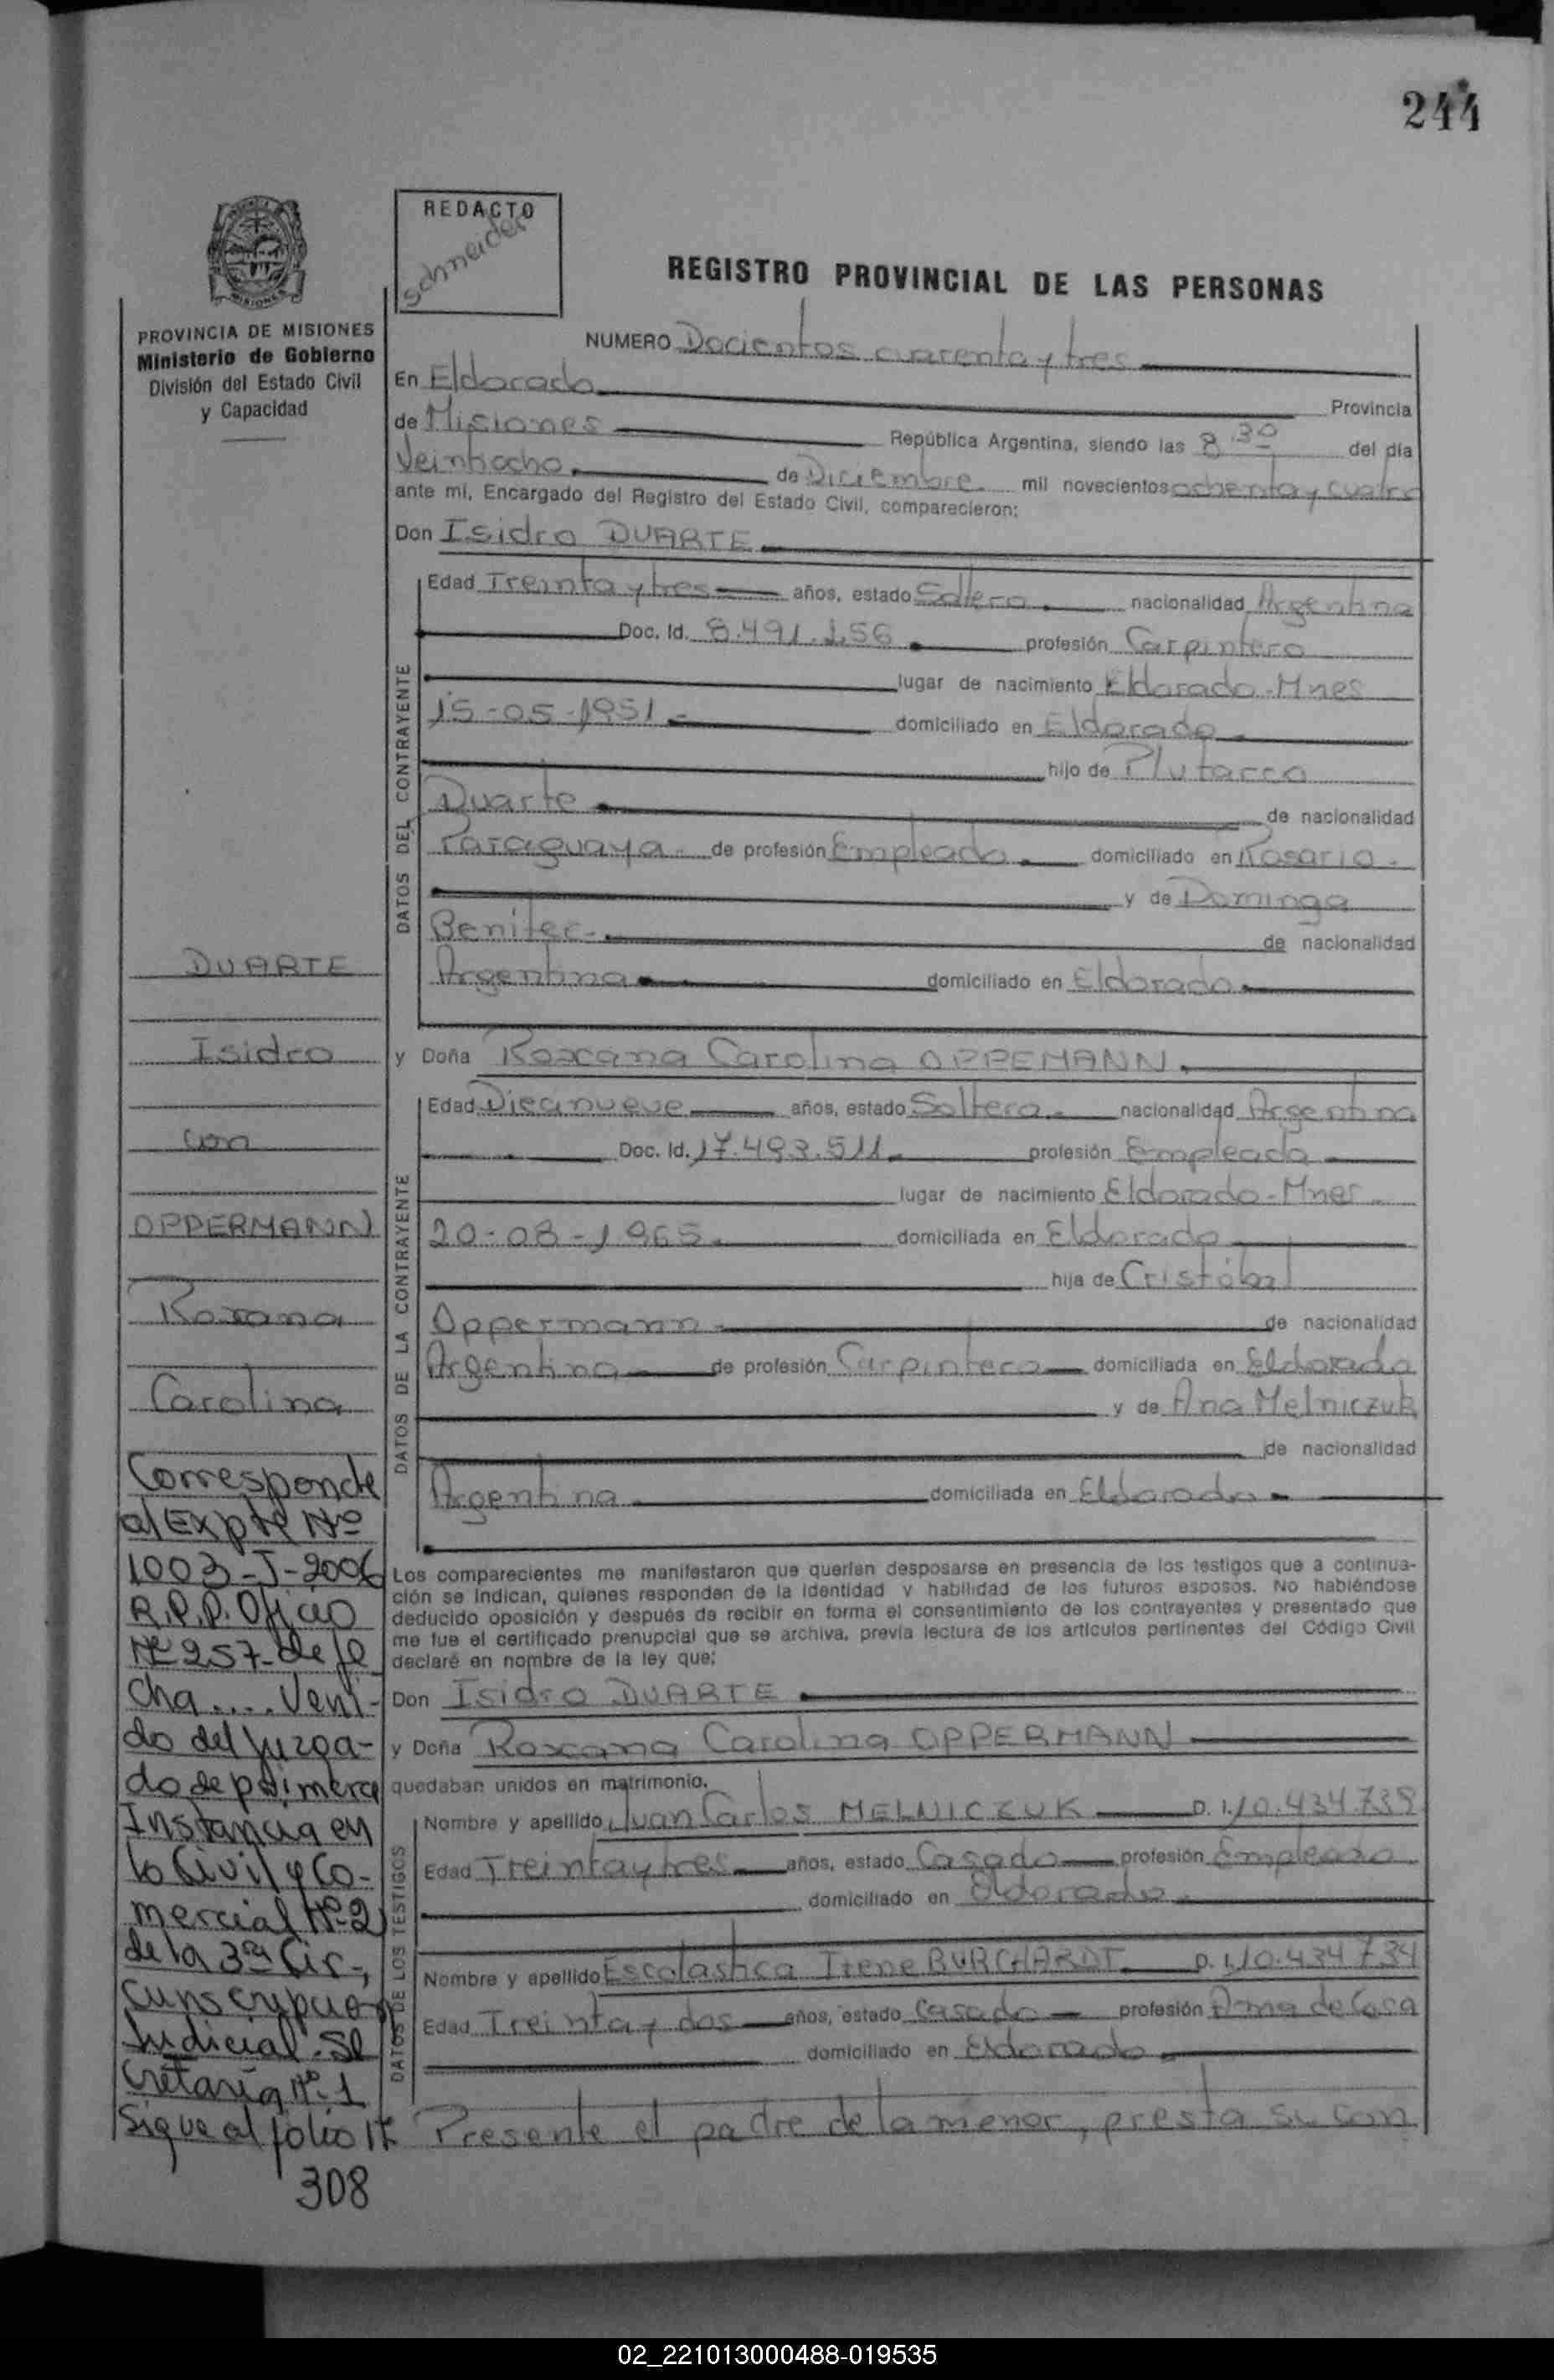 244
REDACTO
Schneider
REGISTRO PROVINCIAL DE LAS PERSONAS
PROVINCIA DE MISIONES
Ministerio de Gobierno
División del Estado Civil
y Capacidad
NUMERO Docientos cuarenta y tres
En Eldorado Provincia
de Misiones República Argentina, siendo las 8 30 del día
Veintiocho de Diciembre mil novecientos ochenta y cuatro
ante mí, Encargado del Registro del Estado Civil, comparecieron:
Don Isidro DUARTE
DATOS DEL CONTRAYENTE
Edad Treinta y tres años, estado Soltero nacionalidad Argentina
Doc. Id. 8.491.156 profesión Carpintero
lugar de nacimiento Eldorado-Mnes
15-05-1951- domiciliado en Eldorado
hijo de Plutarco
Duarte de nacionalidad
Paraguaya- de profesión Empleado domiciliado en Rosario.
y de Dominga
Benitez- de nacionalidad
Argentina domiciliado en Eldorado
y Doña Roxana Carolina OPPEMANN
DATOS DE LA CONTRAYENTE
Edad Diecinueve años, estado Soltera nacionalidad Argentina
Doc. Id. 17.493.511 profesión Empleada
lugar de nacimiento Eldorado-Mnes
20-08-1965. domiciliada en Eldorado
hija de Cristóbal
Oppermann- de nacionalidad
Argentina de profesión Carpintero domiciliada en Eldorado
y de Ana Melniczuk
de nacionalidad
Argentina domiciliada en Eldorado
Los comparecientes me manifestaron que querían desposarse en presencia de los testigos que a continua-
ción se indican, quienes responden de la identidad y habilidad de los futuros esposos. No habiéndose
deducido oposición y después de recibir en forma el consentimiento de los contrayentes y presentado que
me fue el certificado prenupcial que se archiva, previa lectura de los artículos pertinentes del Código Civil
declaré en nombre de la ley que;
Don Isidro DUARTE
y Doña Roxana Carolina OPPERMANN
quedaban unidos en matrimonio.
DATOS DE LOS TESTIGOS
Nombre y apellido Juan Carlos MELNICZUK D.I. 10.434.739
Edad Treinta y tres años, estado Casado profesión Empleado
domiciliado en Eldorado
Nombre y apellido Escolastica Irene BURCHARDT D.I. 10.434734
Edad Treinta y dos años, estado Casado profesión Ama de Casa
domiciliado en Eldorado
Presente el padre de la menor, presta su con
DUARTE
Isidro
con
OPPERMANN
Roxana
Carolina
Corresponde
al Expte Nº
1003-J-2006
R.P.P. Oficio
Nº 257-de fe
cha.... Veni-
do del Juzga-
do de primera
Instancia en
lo Civil y Co-
mercial Nº-2
de la 3ra Cir-,
cunscripcion
Judicial-Se
cretaria Nº-1
Sigue al folio Nº
308
02_221013000488-019535